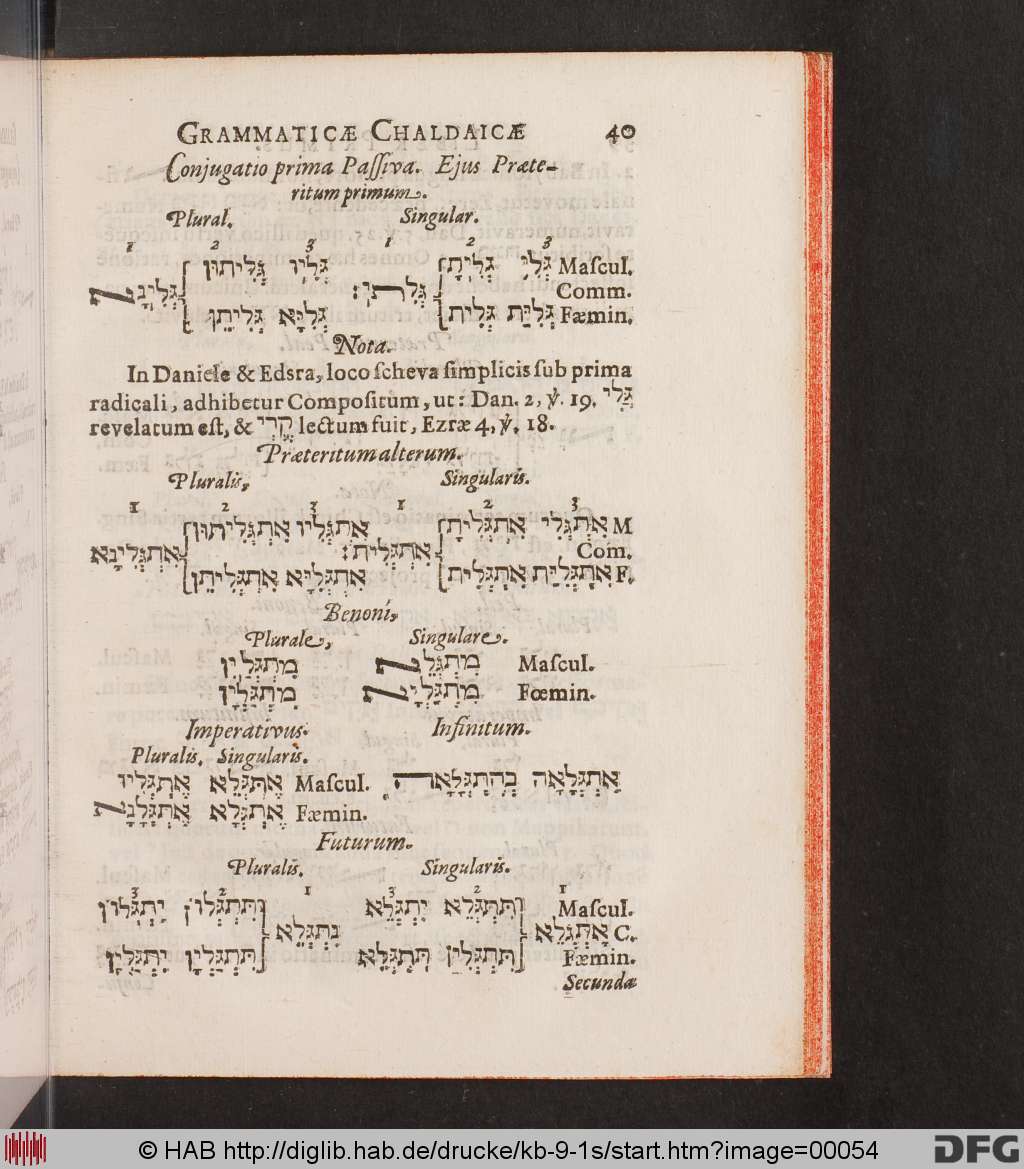 GRAMMATICÆ CHALDAICÆ 40
Conjugatio prima Paſſiva. Ejus Præte-
ritum primum.
Plural. Singular.
1 2 3 1 2 3
גְּלִיתוּן גְּלִיו גְּלִיתָ גְּלִי Maſcul.
גְּלִינָא Comm.
גְּלִיתֵן גְּלִיָא גְּלִית גְּלִיַת Fæmin.
Nota.
In Daniele & Edsra, loco ſcheva ſimplicis ſub prima
radicali, adhibetur Compoſitum, ut: Dan. 2, ℣. 19. גֲּלִי
revelatum eſt, & קֱרִי lectum fuit, Ezræ 4, ℣. 18.
Præteritum alterum.
Pluralis, Singularis.
1 2 3 1 2 3
אִתְגְּלִיתוּן אִתְגְּלִיו אִתְגְּלִיתָ אִתְגְּלִי M
אִתְגְּלִינָא אִתְגְּלִית: Com.
אִתְגְּלִיתֵן אִתְגְּלִיָא אִתְגְּלִית אִתְגְּלִיַת F.
Benoni,
Plurale, Singulare.
מִתְגְּלַיִן מִתְגְּלֵא Maſcul.
מִתְגַּלְיָן מִתְגַּלְיָא Fœmin.
Imperativus. Infinitum.
Pluralis. Singularis.
אֶתְגְּלִיו אֶתְגְּלֵא Maſcul. בְּהִתְגְּלָאָה אִתְגְּלָאָה
אֶתְגְּלָא Fæmin.
Futurum.
Pluralis. Singularis.
3 2 1 3 2 1
יִתְגְּלוֹן תִּתְגְּלוֹן יִתְגְּלֵא תִּתְגְּלֵא Maſcul.
נִתְגְּלֵא אֶתְגְּלֵא C.
יִתְגַּלְיָן תִּתְגַּלְיָן תִּתְגְּלֵא תִּתְגְּלִין Fæmin.
Secundæ
© HAB http://diglib.hab.de/drucke/kb-9-1s/start.htm?image=00054
DFG